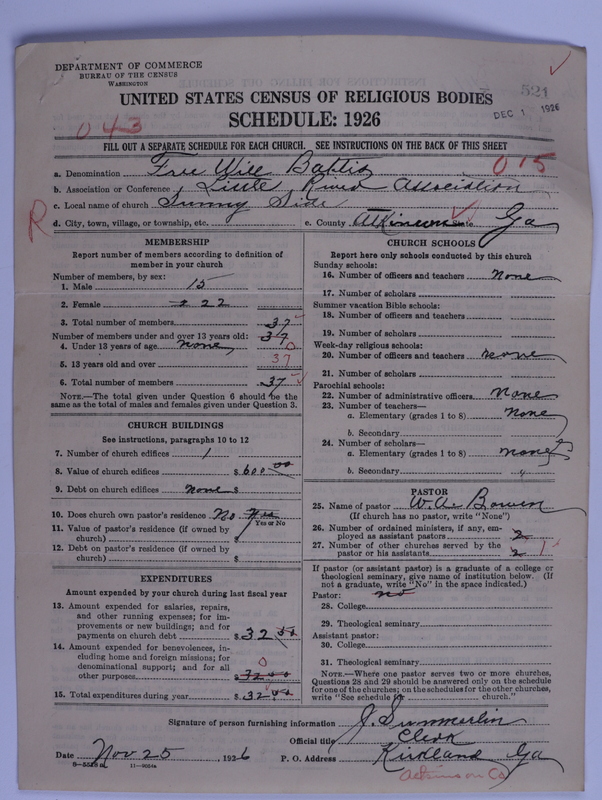 DEPARTMENT OF COMMERCE
BUREAU OF THE CENSUS
WASHINGTON
521
DEC 1 1926
UNITED STATES CENSUS OF RELIGIOUS BODIES
SCHEDULE: 1926
043
FILL OUT A SEPARATE SCHEDULE FOR EACH CHURCH. SEE INSTRUCTIONS ON THE BACK OF THIS SHEET
015
a. Denomination Free Will Baptis
b. Association or Conference Little River Association
c. Local name of church Sunny Side
R
d. City, town, village, or township, etc. e. County Atkinson State Ga
MEMBERSHIP
Report number of members according to definition of member in your church
Number of members, by sex:
1. Male 15
2. Female 22
3. Total number of members 37
Number of members under and over 13 years old: 37
4. Under 13 years of age none 0
5. 13 years old and over 37
6. Total number of members 37
NOTE.—The total given under Question 6 should be the
same as the total of males and females given under Question 3.
CHURCH BUILDINGS
See instructions, paragraphs 10 to 12
7. Number of church edifices 1
8. Value of church edifices $ 600 00
9. Debt on church edifices none $
10. Does church own pastor's residence? No Yes
Yes or No
11. Value of pastor's residence (if owned by
church) $
12. Debt on pastor's residence (if owned by
church) $
EXPENDITURES
Amount expended by your church during last fiscal year
13. Amount expended for salaries, repairs,
and other running expenses; for im-
provements or new buildings; and for
payments on church debt $ 32 00
14. Amount expended for benevolences, in-
cluding home and foreign missions; for
denominational support; and for all 0
other purposes $ 32 00
15. Total expenditures during year $ 32 00
CHURCH SCHOOLS
Report here only schools conducted by this church
Sunday schools:
16. Number of officers and teachers none
17. Number of scholars
Summer vacation Bible schools:
18. Number of officers and teachers
19. Number of scholars
Week-day religious schools:
20. Number of officers and teachers none
21. Number of scholars
Parochial schools:
22. Number of administrative officers none
23. Number of teachers—
a. Elementary (grades 1 to 8) none
b. Secondary
24. Number of scholars—
a. Elementary (grades 1 to 8) none
b. Secondary "
PASTOR
25. Name of pastor W. A. Bowen
(If church has no pastor, write "None")
26. Number of ordained ministers, if any, em-
ployed as assistant pastors 2
27. Number of other churches served by the
pastor or his assistants 2 1
If pastor (or assistant pastor) is a graduate of a college or
theological seminary, give name of institution below. (If
not a graduate, write "No" in the space indicated.)
Pastor: no
28. College
29. Theological seminary
Assistant pastor:
30. College
31. Theological seminary
NOTE.—Where one pastor serves two or more churches,
Questions 28 and 29 should be answered only on the schedule
for one of the churches; on the schedules for the other churches,
write "See schedule for church."
Signature of person furnishing information J. Summerlin
Official title Clerk
Date Nov 25, 1926 P. O. Address Kirkland Ga
11—9024a
Atkinson Co